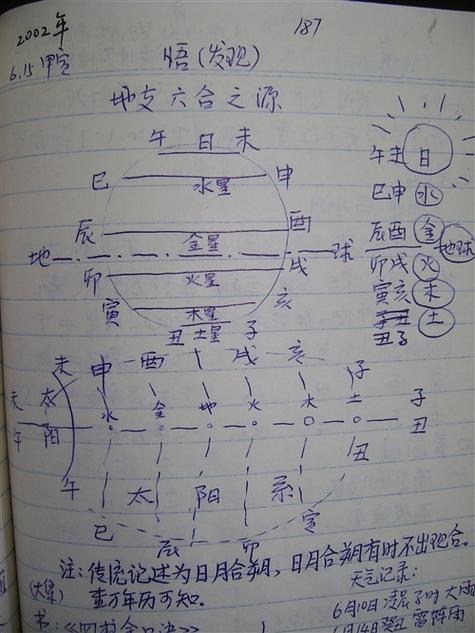 2002年
187
6.15甲寅
悟(发现)
地支六合之源
午 日 未
巳 水星 申
辰 金星 酉
地 球
卯 火星 戌
寅 木星 亥
丑 土星 子
午未 日
巳申 水
辰酉 金
地球
卯戌 火
寅亥 木
子丑 土
丑子
未 申 酉 戌 亥 子
未 太 水 金 地 火 木 土 子
午 阳 丑
午 太 阳 系 丑
巳 辰 卯 寅
注:传统记述为日月合朔,日月合朔有时不出现合。
查万年历可知。
天气记录:
6月10日 凌晨子时 大雨
书:《四柱金口诀》
6月14日 癸丑 雷阵雨